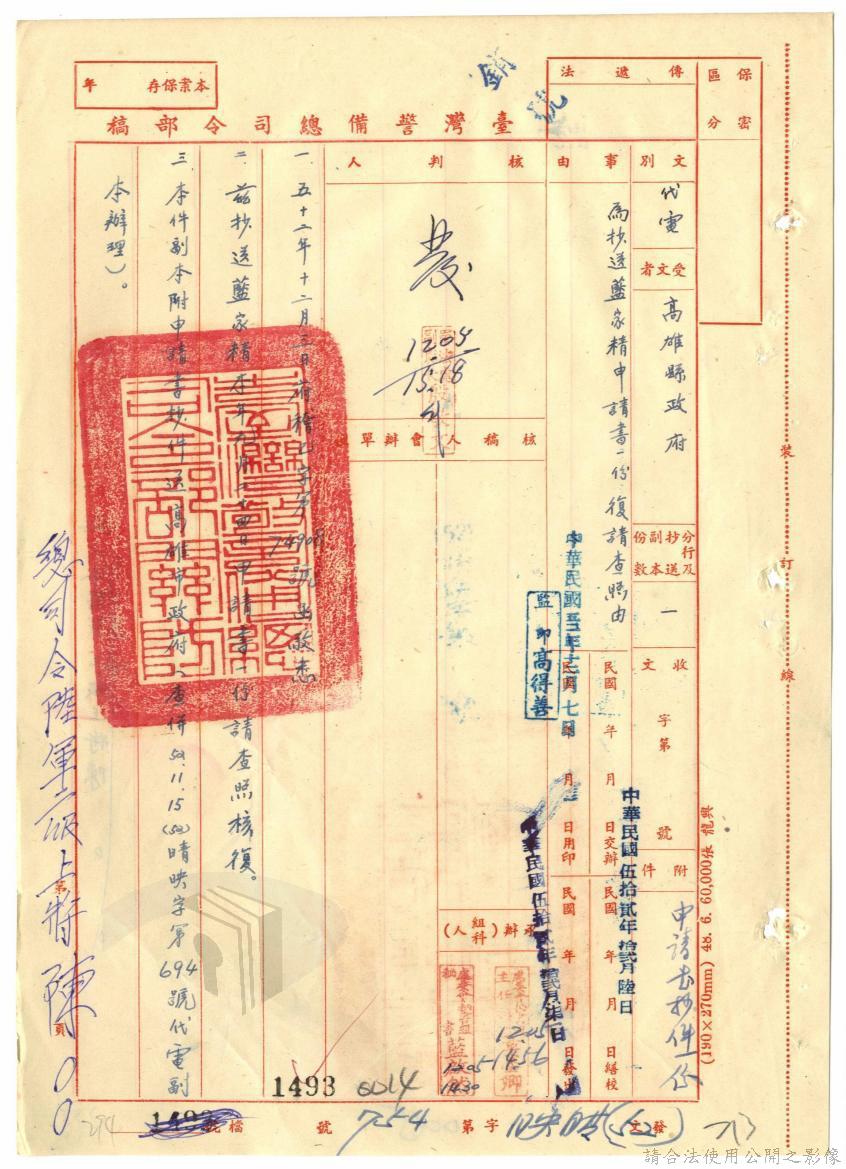 保密
區分
傳遞法
本案保存 年
銷號
臺灣警備總司令部稿
文別
代電
受文者
高雄縣政府
分行及抄送副本份數
一
收文 字第 號
附件
申請書抄件一份
事由
為抄送藍家精申請書一份復請查照由
核判人
核稿人
會辦單位
1205
1518
一 五十二年十二月三日府稽乙字第74908號函敬悉
二 茲抄送藍家精本年九月廿四日申請書一份請查照核復。
三 本件副本附申請書抄件送高雄市政府(查併52.11.15(52)晴映字第694號代電副
本辦理)。
總司令陸軍二級上將陳○○
中華民國伍拾貳年拾貳月陸日
監印 高得善
民國 年 月 日交辦
民國 年 月 日繕校
民國 年 月 日用印
民國 年 月 日發出
中華民國伍拾貳年拾貳月柒日
承辦(組科人)
1205
1456
1205
1430
發文
映晴(52)
字第
754
號
檔號
1493
0014
1493
294
713
第 頁
裝訂線
(190×270mm) 48. 6. 60,000張 龍興
請合法使用公開之影像